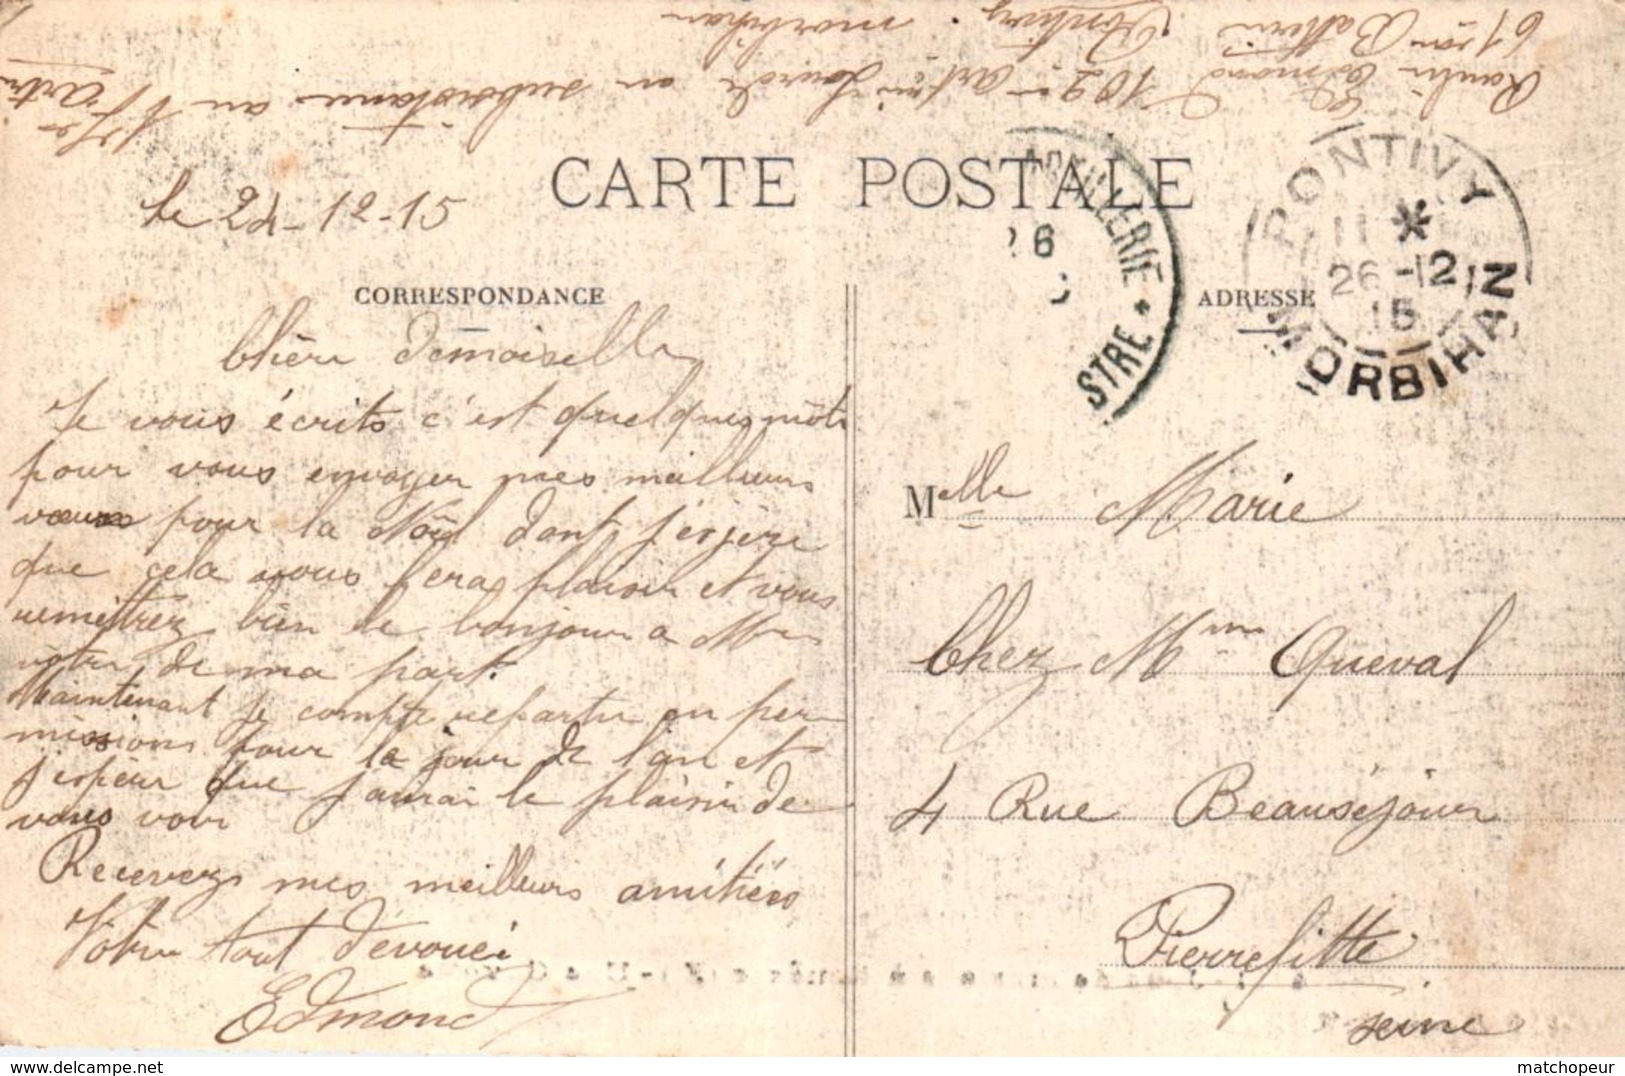 Edmond 102e artrie Lourde en subsistance au 1er artrie
61eme Batterie Pontivy. morbihan
CARTE POSTALE
ARTILLERIE
26
STRE
PONTIVY
11 *
26 -12
15
MORBIHAN
le 24-12-15
CORRESPONDANCE
Chère demoiselle
Je vous écrits c'est quelques mots
pour vous envoyer mes meilleurs
vœux pour la Noël dont j'espère
que cela vous fera plaisir et vous
remettrez bien le bonjour a Mme
votre de ma part.
Maintenant je compte repartir en per
missions pour le jour de l'an et
j'espère que j'aurai le plaisir de
vous voir
Recevez mes meilleurs amitiées
Votre tout dévouéi
Edmond
ADRESSE
Melle Marie
Chez Mme Queval
4 Rue Beauséjour
Pierrefitte
seine
matchopeur